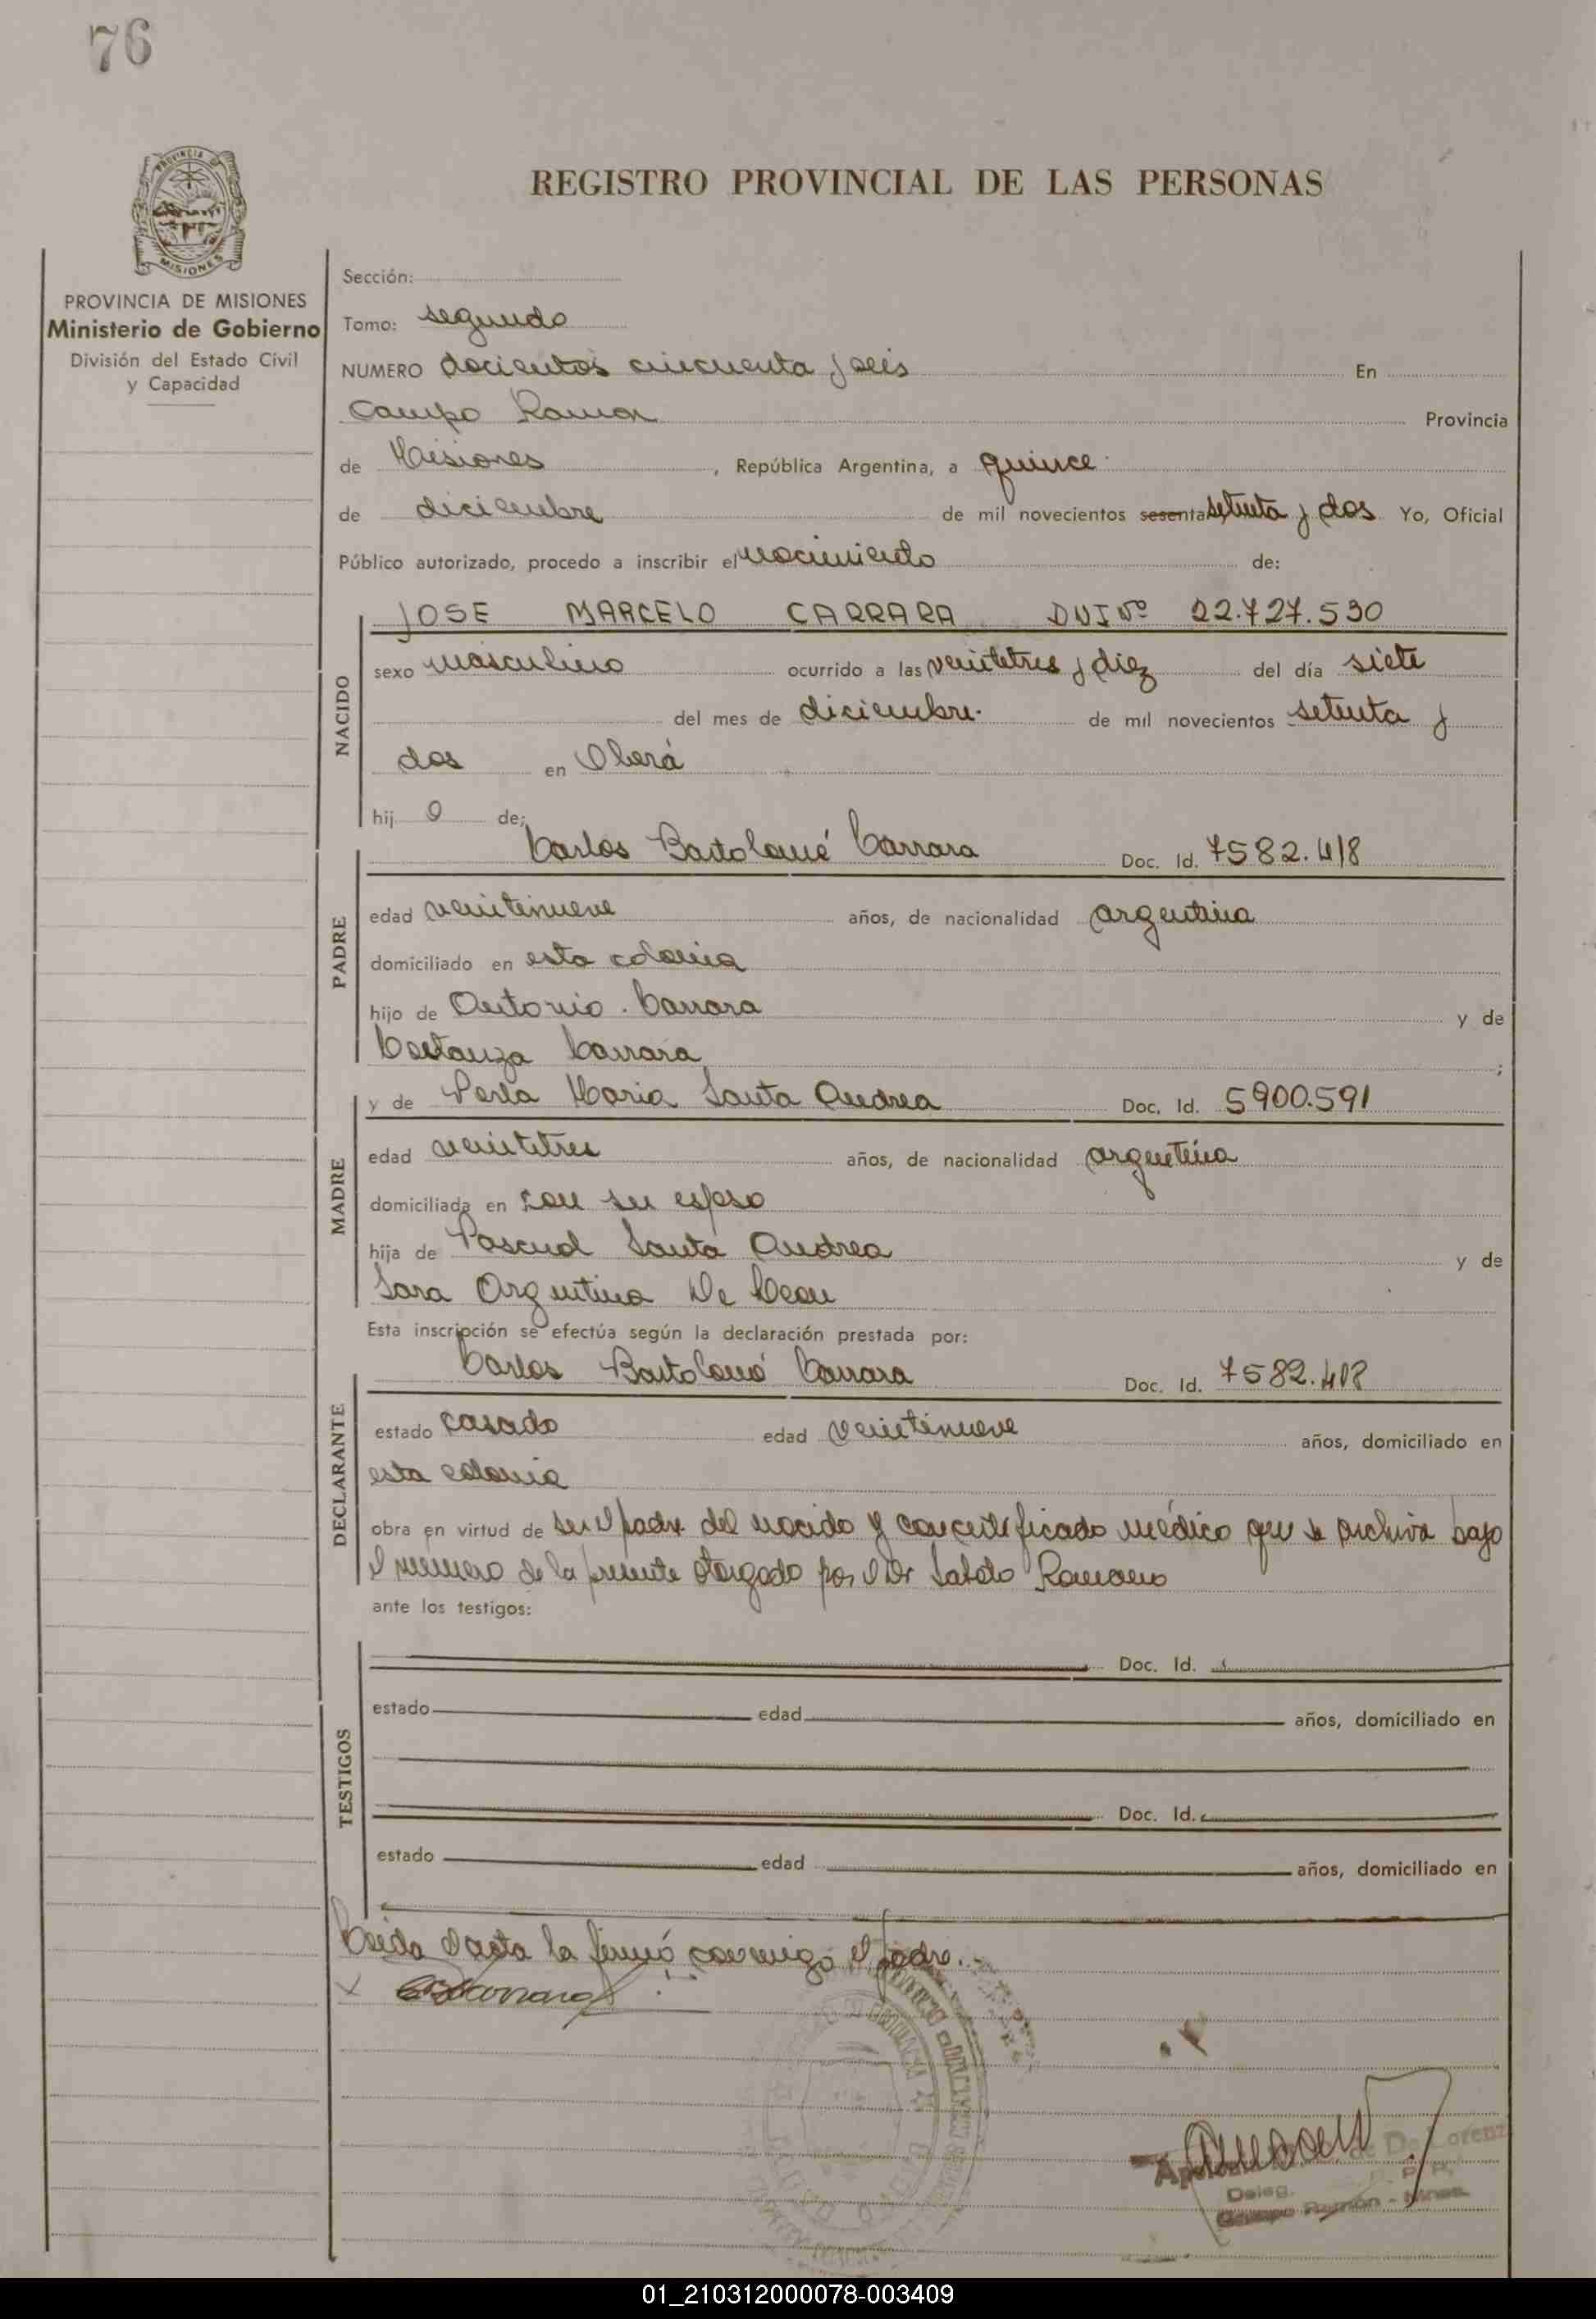 76
PROVINCIA DE
MISIONES
REGISTRO PROVINCIAL DE LAS PERSONAS
PROVINCIA DE MISIONES
Ministerio de Gobierno
División del Estado Civil
y Capacidad
Sección:
Tomo: segundo
NUMERO docientos cincuenta y seis En
Campo Ramon Provincia
de Misiones, República Argentina, a quince
de diciembre de mil novecientos sesenta setenta y dos Yo, Oficial
Público autorizado, procedo a inscribir el nacimiento de:
NACIDO
JOSE MARCELO CARRARA DNI Nº 22.727.530
sexo masculino ocurrido a las veintetres y diez del día siete
del mes de diciembre. de mil novecientos setenta y
dos en Oberá
hij o de;
PADRE
Carlos Bartolomé Carrara Doc. Id. 7582.418
edad veintinueve años, de nacionalidad argentina
domiciliado en esta colonia
hijo de Antonio Carrara y de
Carrara;
MADRE
y de Perla Maria Santa Andrea Doc. Id. 5900.591
edad veintitres años, de nacionalidad argentina
domiciliada en con su esposo
hija de Pascual Santa Andrea y de
Sara Argentina De
Esta inscripción se efectúa según la declaración prestada por:
DECLARANTE
Carlos Bartolomé Carrara Doc. Id. 7582.418
estado casado edad veintinueve años, domiciliado en
esta colonia
obra en virtud de ser el padre del nacido y con certificado médico que se archiva bajo
el numero de la presente otorgado por el Dr Romano
ante los testigos:
TESTIGOS
Doc. Id.
estado edad años, domiciliado en
Doc. Id.
estado edad años, domiciliado en
Leida el acta la firmó conmigo el padre.
de De Lorenz
Deleg. R. P. P.
Campo Ramón - Mnes.
01_210312000078-003409